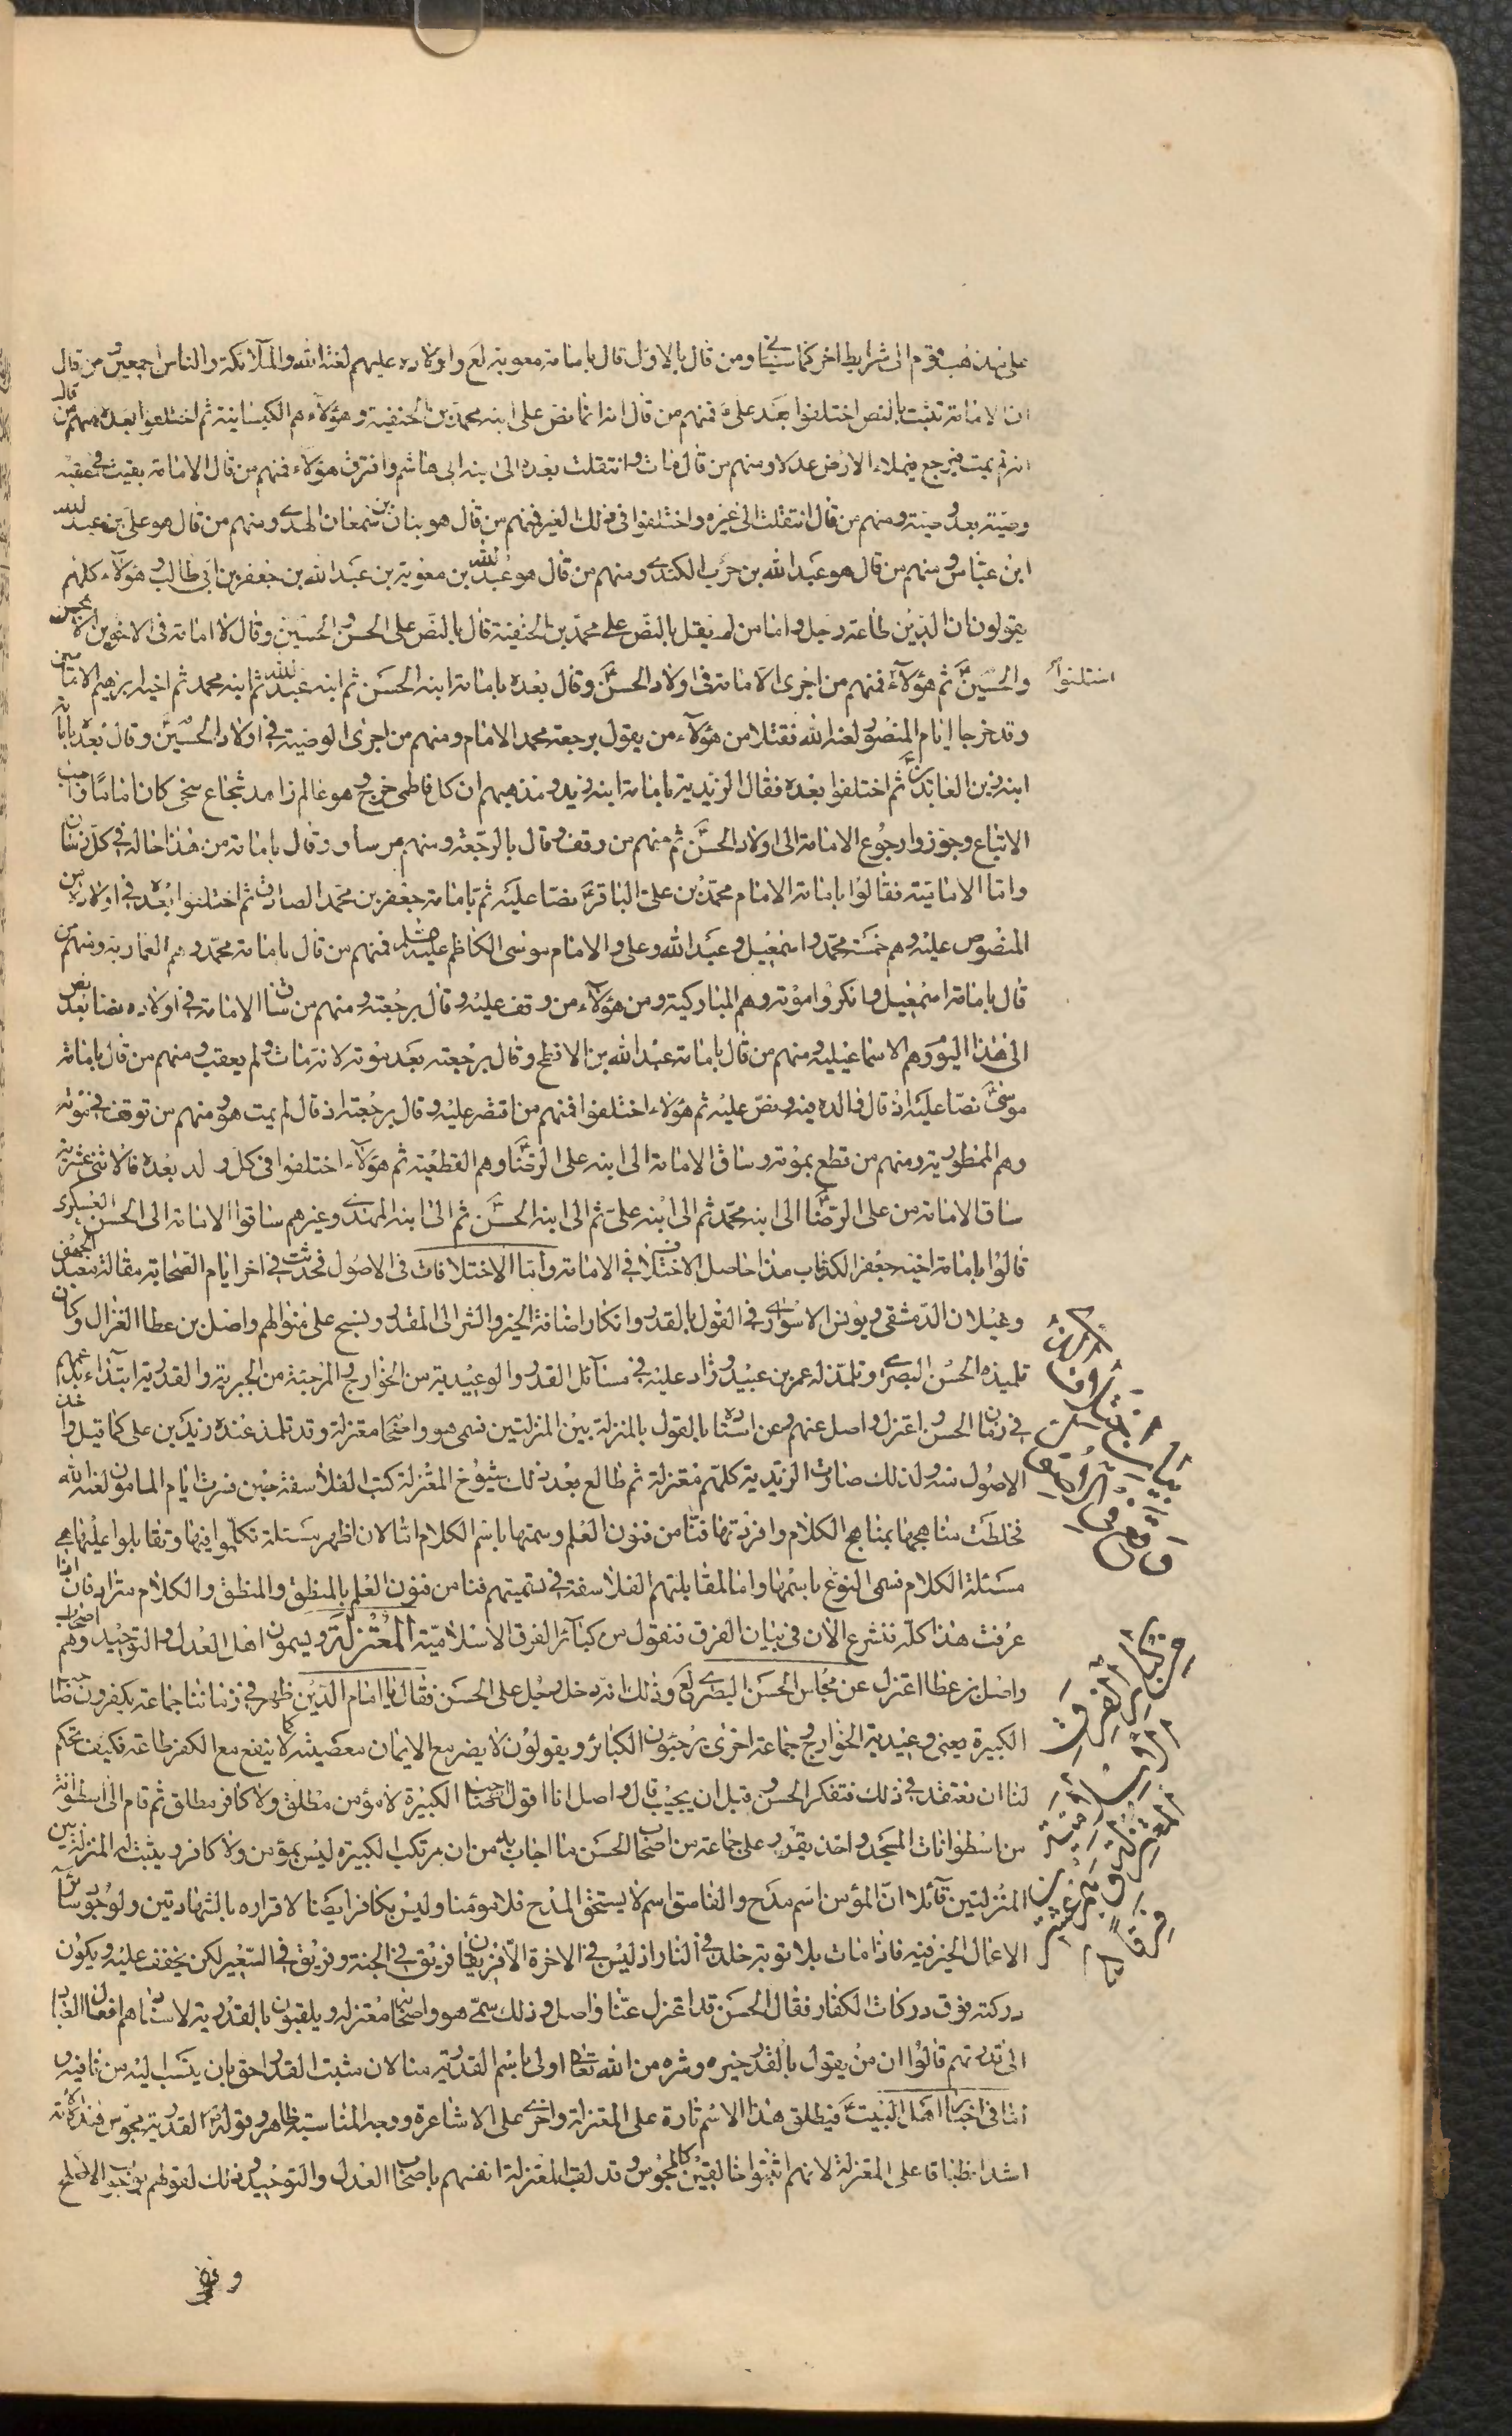 على نهذ هب قوم الى شرايط اخر كما سيأتى ومن قال بالاول قال بامامة معوية لع واولاده عليهم لعنة الله والملائكة والناس اجمعين ومن قال
ان الامامة تثبت بالنص اختلفوا بعد على ع فمنهم من قال انه انما نص على ابنه محمد بن الحنفية وهؤلاء هم الكيسانية ثم اختلفوا بعده فمنهم من قال
انه لم يمت فيرجع فيملاء الارض عدلا ومنهم من قال مات وانتقلت بعده الى ابنه ابى هاشم وافترق هؤلاء فمنهم من قال الامامة بقيت فى عقبه
وصية بعد وصية ومنهم من قال انتقلت الى غيره واختلفوا فى ذلك الغير فمنهم من قال هو بنان بن سمعان الهدى ومنهم من قال هو على بن عبد الله
ابن عباس ومنهم من قال هو عبد الله بن حرب الكندى ومنهم من قال هو عبد الله بن معوية بن عبد الله بن جعفر بن ابى طالب وهؤلاء كلهم
يقولون ان الدين طاعة رجل واما من لم يقل بالنص على محمد بن الحنفية قال بالنص على الحسن والحسين وقال لا امامة فى الاخوين الا الحسن
والحسين ع ثم هؤلاء اختلفوا فمنهم من اجرى الامامة فى اولاد الحسن ع وقال بعده بامامة ابنه الحسن ثم ابنه عبد الله ثم ابنه محمد ثم اخيه ابرهيم الامامين
وقد خرجا ايام المنصور لعنه الله فقتلا من هؤلاء من يقول برجعة محمد الامام ومنهم من اجرى الوصية فى اولاد الحسين ع وقال بعده بامامة
ابنه زين العابدين ع ثم اختلفوا بعده فقال الزيدية بامامة ابنه زيد ومذهبهم ان كل فاطمى خرج وهو عالم زاهد شجاع سخى كان اماما واجب
الاتباع وجوزوا رجوع الامامة الى اولاد الحسن ع ثم منهم من وقف وقال بالرجعة ومنهم من ساق وقال بامامة من هذا حاله فى كل زمان
واما الامامية فقالوا بامامة الامام محمد بن على الباقر ع نصا عليه ثم بامامة جعفر بن محمد الصادق ثم اختلفوا بعده فى اولاده من
المنصوص عليه وهم خمسة محمد واسمعيل وعبد الله وعلى والامام موسى الكاظم عليه السلم فمنهم من قال بامامة محمد وهم العمارية ومنهم من
قال بامامة اسمعيل وانكروا موته وهم المباركية ومن هؤلاء من وقف عليه وقال برجعته ومنهم من ساق الامامة فى اولاده نصا بعد نص
الى هذا اليوم وهم الاسماعيلية ومنهم من قال بامامة عبد الله بن الافطح وقال برجعته بعد موته لانه مات ولم يعقب ومنهم من قال بامامة
موسى ع نصا عليه اذ قال والده فيه ونص عليه ثم هؤلاء اختلفوا فمنهم من اقتصر عليه وقال برجعته اذ قال لم يمت هو ومنهم من توقف فى موته
وهم الممطورية ومنهم من قطع بموته وساق الامامة الى ابنه على الرضا ع وهم القطعية ثم هؤلاء اختلفوا فى كل ولد بعده فالاثنى عشرية
ساقا الامامة من على الرضا ع الى ابنه محمد ثم الى ابنه على ثم الى ابنه الحسن ع ثم الى ابنه المهدى وغيرهم ساقوا الامامة الى الحسن العسكرى
قالوا بامامة اخيه جعفر الكذاب هذا حاصل الاختلاف فى الامامة واما الاختلافات فى الاصول فحدثت فى اخر ايام الصحابة مقالة معبد الجهنى
وغيلان الدمشقى ويونس الاسوارى فى القول بالقدر وانكار اضافة الخير والشر الى القدر ونسج على منوالهم واصل بن عطا الغزال وكان
تلميذه الحسن البصرى وتلمذ له عمر بن عبيد وزاد عليه فى مسائل القدر والوعيدية من الخوارج والمرجئة من الجبرية والقدرية ابتداء بدعتهم
فى زمان الحسن واعتزل واصل عنهم وعن استاده بالقول بالمنزلة بين المنزلتين فسمى هو واصحابه معتزلة وقد تلمذ عنده زيد بن على كما قيل واخذ
الاصول منه ولذلك صارت الزيدية كلهم معتزلة ثم طالع بعد ذلك شيوخ المعتزلة كتب الفلاسفة حين فسرت ايام المامون لعنه الله
فخلطت مناهجها بمناهج الكلام وافردتها فنا من فنون العلم وسمتها باسم الكلام اما لان اظهر مسئلة تكلموا فيها وتقابلوا عليها هى
مسئلة الكلام فسمى النوع باسمها واما لمقابلتهم الفلاسفة فى تسميتهم فنا من فنون العلم بالمنطق والمنطق والكلام مترادفان اذا
عرفت هذا كله فنشرع الان فى بيان الفرق فنقول من كبائر الفرق الاسلامية المعتزلة ويسمون اهل العدل والتوحيد وهم اصحاب
واصل بن عطا اعتزل عن مجلس الحسن البصرى لع وذلك انه دخل رجل على الحسن فقال يا امام الدين ظهر فى زماننا جماعة يكفرون صاحب
الكبيرة يعنى وعيدية الخوارج وجماعة اخرى يرجئون الكبائر ويقولون لا يضر مع الايمان معصية كما لا ينفع مع الكفر طاعة فكيف تحكم
لنا ان نعتقد فى ذلك فتفكر الحسن وقبل ان يجيب قال واصل انا اقول صاحب الكبيرة لا مؤمن مطلق ولا كافر مطلق ثم قام الى اسطوانة
من اسطوانات المسجد واخذ يقرر على جماعة من اصحاب الحسن ما اجاب به من ان مرتكب الكبيرة ليس بمؤمن ولا كافر ويثبت له المنزلة بين
المنزلتين قائلا ان المؤمن اسم مدح والفاسق اسم لا يستحق المدح فلا مؤمنا وليس بكافر ايضا لاقراره بالشهادتين ولوجود سائر
الاعمال الخير فيه فاذا مات بلا توبة خلد فى النار اذ ليس فى الاخرة الا فريقان فريق فى الجنة وفريق فى السعير لكن يخفف عليه ويكون
دركته فوق دركات الكفار فقال الحسن قد اعتزل عنا واصل وذلك سمى هو واصحابه معتزلة ويلقبون بالقدرية لاسنادهم افعال العباد
الى قدرتهم قالوا ان من يقول بالقدر خيره وشره من الله تعالى اولى باسم القدرية منا لان مثبت القدر احق بان ينسب اليه من نافيه و
اما فى اخبار اهل البيت ع فيطلق هذا الاسم تارة على المعتزلة واخرى على الاشاعرة ووجه المناسبة ظاهر وقوله القدرية مجوس هذه الامة
اشد انطباقا على المعتزلة لانهم اثبتوا خالقين كالمجوس وقد لقب المعتزلة انفسهم باصحاب العدل والتوحيد وذلك لقولهم بوجوب الاصلح
اختلفوا
بيان اختلافات التى
وقع فى الاصول
من كبائر الفرق
الاسلامية
المعتزلة وهم عشرون
فرقا